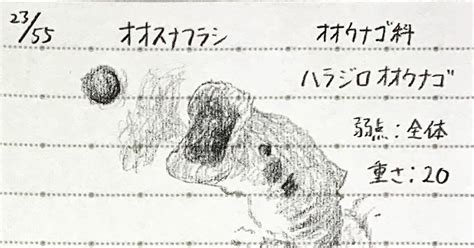 23/55 オオスナフラシ オオウナゴ科
ハラジロオオウナゴ
弱点:全体
重さ:20